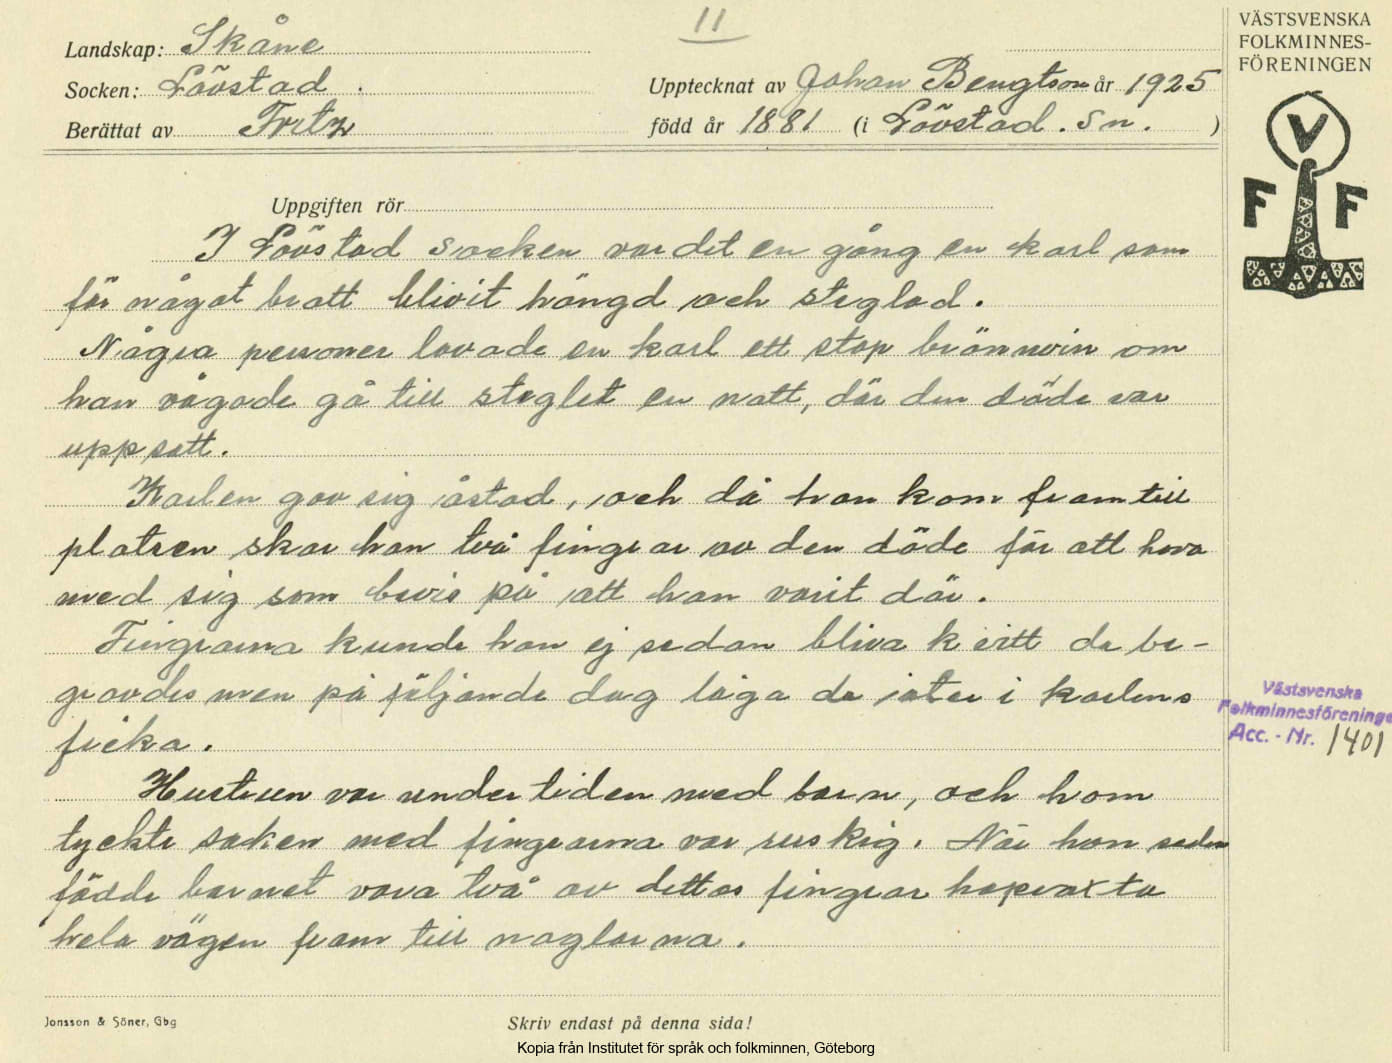 11
VÄSTSVENSKA
FOLKMINNES-
FÖRENINGEN
Landskap: Skåne
Socken: Lövstad.
Upptecknat av Johan Bengtson år 1925
Berättat av Fritz
född år 1881 (i Lövstad. sn. )
V
F F
Uppgiften rör
I Lövstad socken var det en gång en karl som
för något brott blivit hängd och steglad.
Några personer lovade en karl ett stop brännvin om
han vågade gå till steglet en natt, där den döde var
uppsatt.
Karlen gav sig åstad, och då han kom fram till
platsen skar han två fingrar av den döde för att hava
med sig som bevis på att han varit där.
Fingrarna kunde han ej sedan bliva kvitt de be-
gravdes men på följande dag låga de åter i karlens
ficka.
Hustrun var under tiden med barn, och hon
tyckte saken med fingrarna var ruskig. När hon sedan
födde barnet vara två av dettas fingrar hopvaxta
hela vägen fram till naglarna.
Västsvenska
Folkminnesföreninge
Acc. - Nr. 1401
Jonsson & Söner, Gbg
Skriv endast på denna sida!
Kopia från Institutet för språk och folkminnen, Göteborg